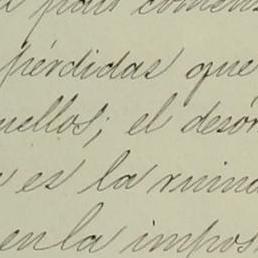 país comen
pérdidas que
uellos; el desór
es la ruina
en la impos